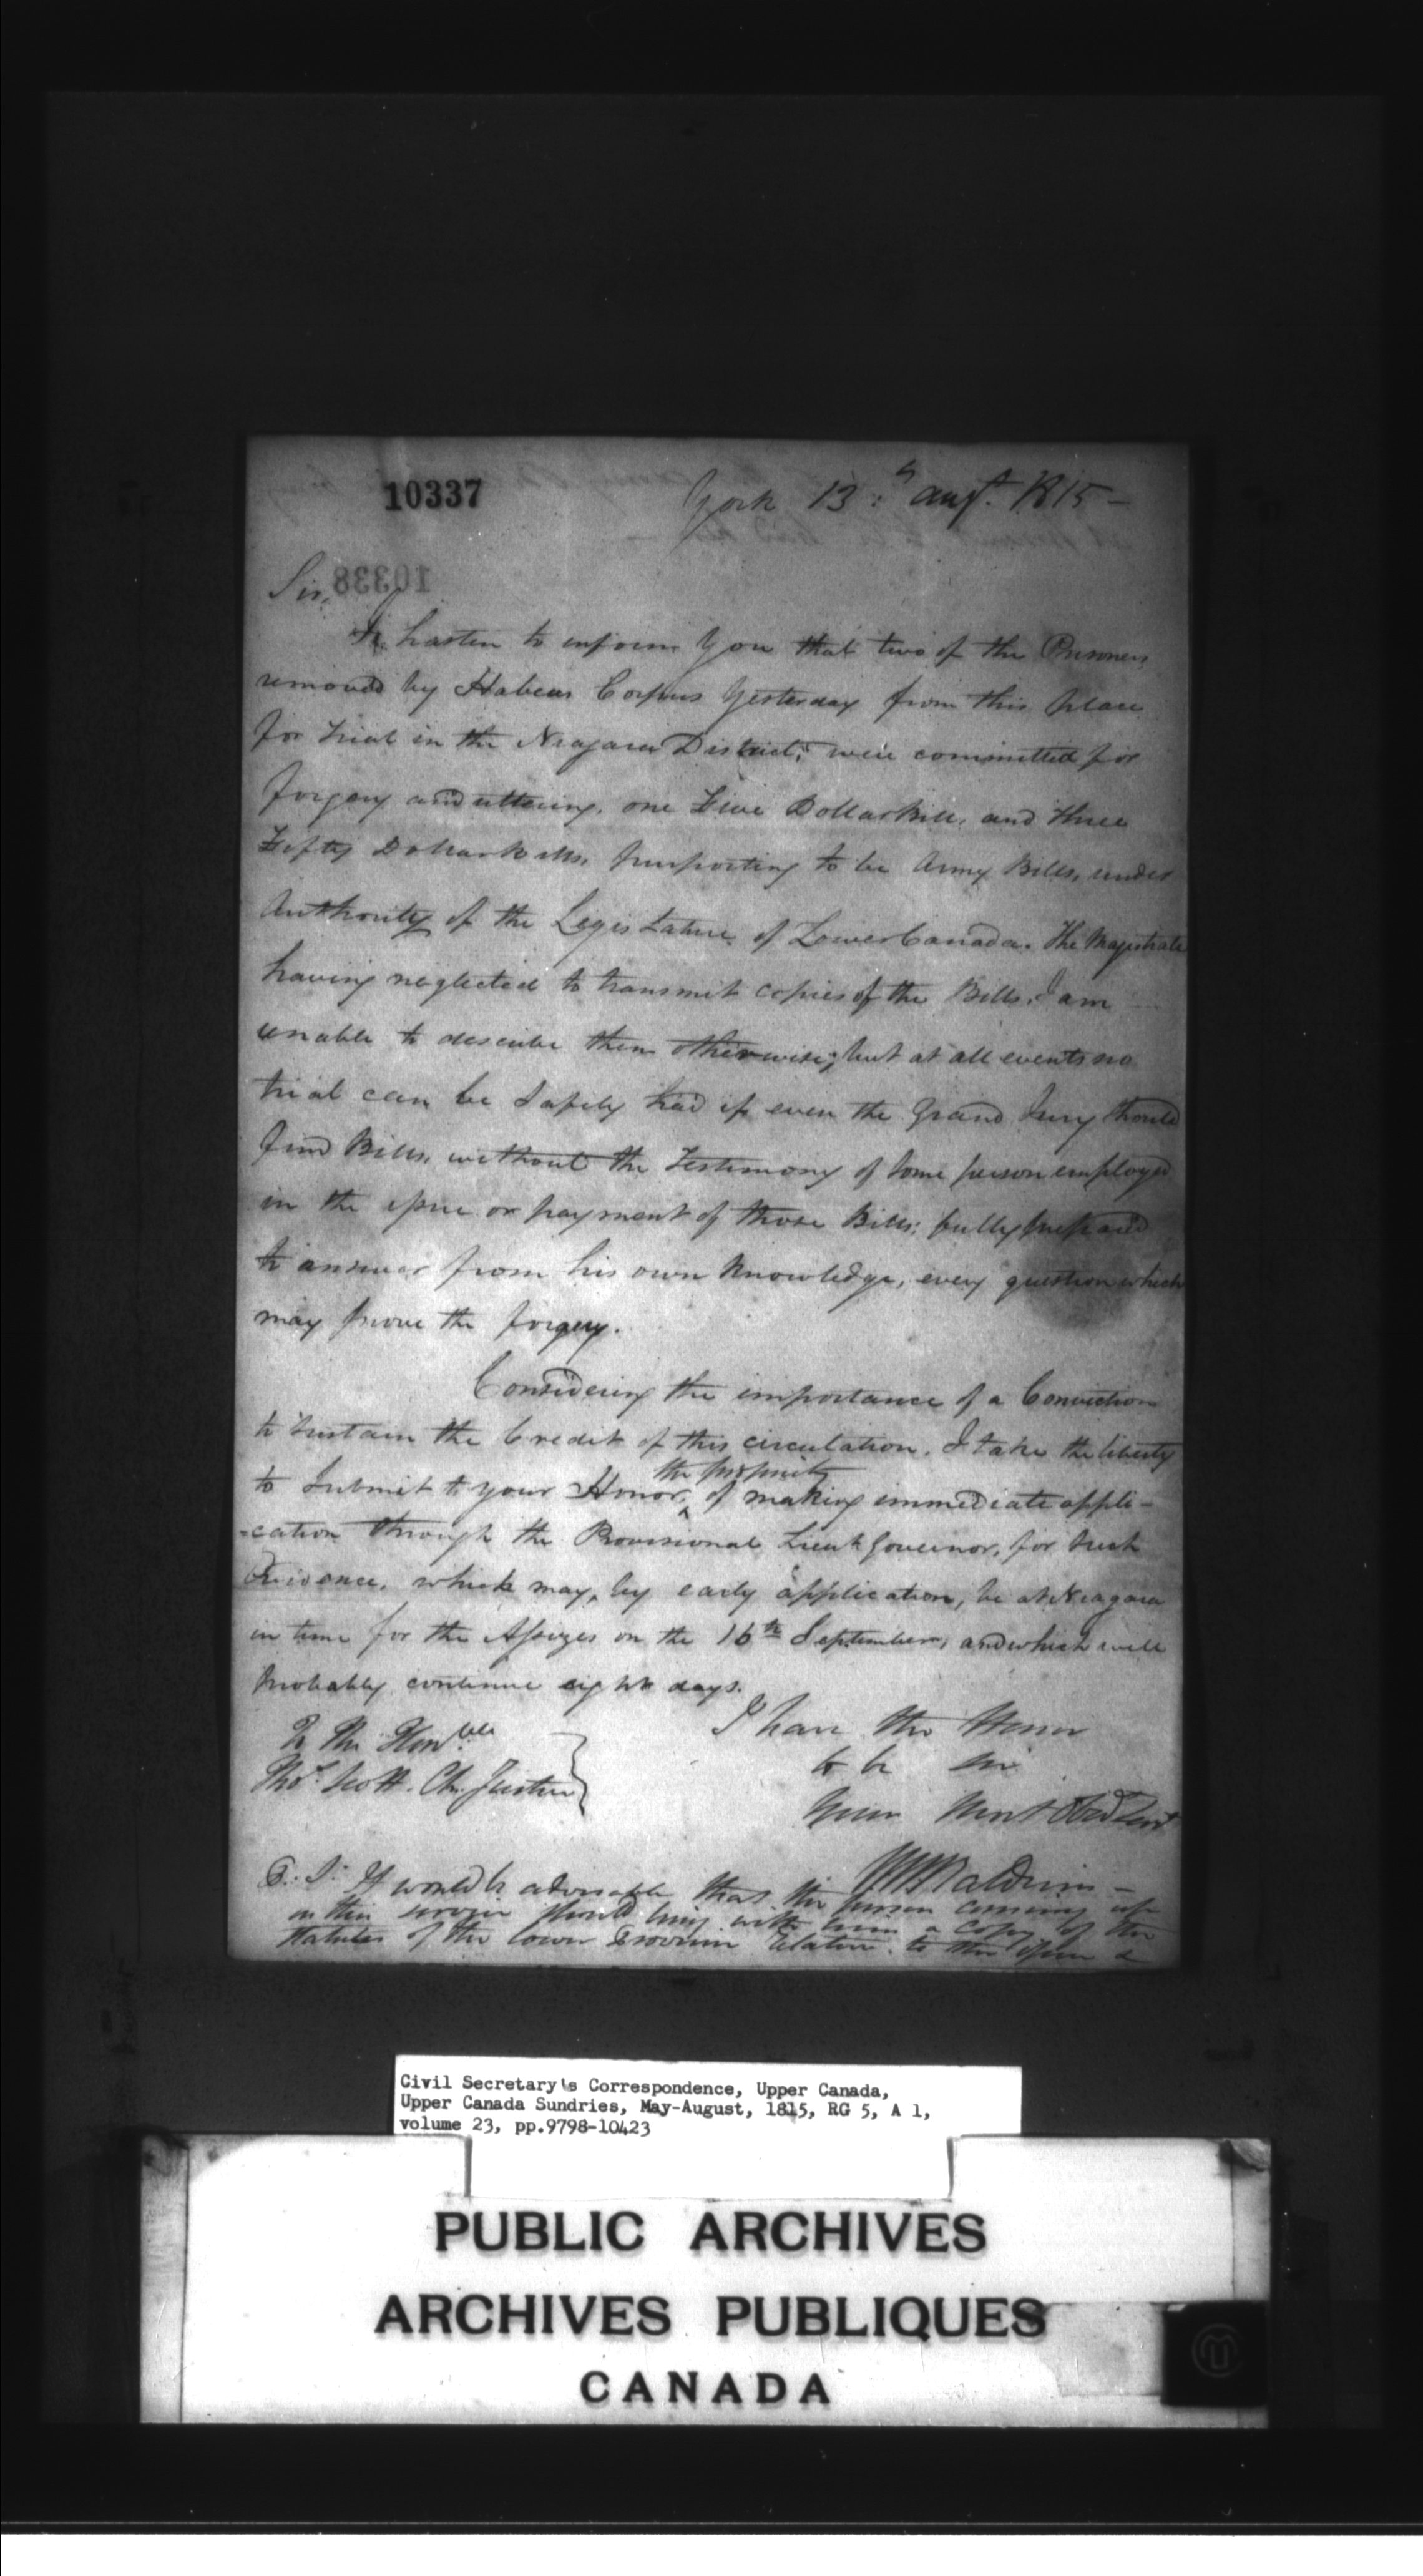 10337
York 13:th augt. 1815 -
10338
Sir,
I hasten to inform You that two of the Prisoners
removed by Habeas Corpus Yesterday from this place
for trial in the Niagara District; were committed for
forgery and uttering, one Five Dollar Bill, and three
Fifty Dollar bills, purporting to be Army Bills, under
Authority of the Legislature of Lower Canada. The Magistrate
having neglected to transmit copies of the Bills, I am
unable to describe them otherwise; but at all events no
trial can be safely had if even the Grand Jury should
find Bills, without the Testimony of some person employed
in the issue or payment of those Bills; fully prepared
to answer from his own knowledge, every question which
may prove the forgery.
Considering the importance of a Conviction
to sustain the Credit of this circulation, I take the liberty
the propriety
to submit to your Honor, of making immediate appli-
-cation through the Provisional Lieut Governor, for such
Evidence, which may, by early application, be at Niagara
in time for the Assizes on the 16th September, and which will
probably continue eight days.
I have the Honor
to be Sir
Your Most Obed Servt
To The Honble
Thos. Scott. Ch. Justice
WWBaldwin -
P.. S.. It would be adviseable that the person coming up
on this service should bring with him a copy of the
Statutes of the lower Province relative to the issue &
Civil Secretary's Correspondence, Upper Canada,
Upper Canada Sundries, May-August, 1815, RG 5, A 1,
volume 23, pp.9798-10423
PUBLIC ARCHIVES
ARCHIVES PUBLIQUES
CANADA